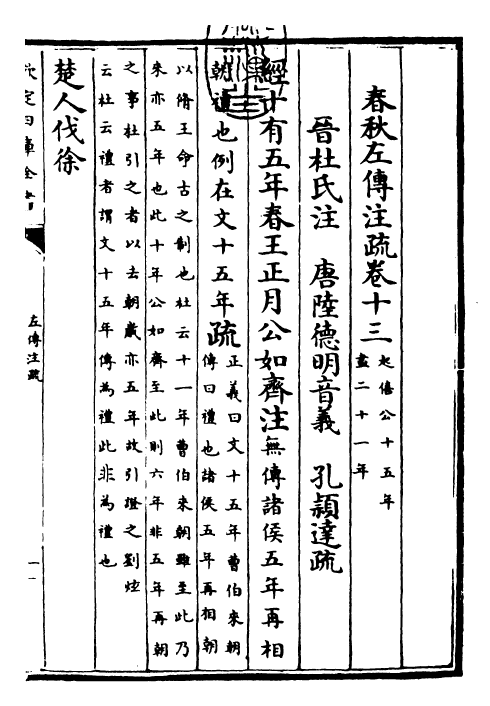 春秋左傳注疏卷十三 起僖公十五年
盡二十一年
晉杜氏注 唐陸德明音義 孔穎達疏
經十有五年春王正月公如齊注無傳諸侯五年再相
朝禮也例在文十五年疏 正義曰文十五年曹伯來朝
傳曰禮也諸侯五年再相朝
以脩王命古之制也杜云十一年曹伯來朝雖至此乃
來亦五年也此十年公如齊至此則六年非五年再朝
之事杜引之者以去朝歲亦五年故引證之劉炫
云杜云禮者謂文十五年傳為禮此非為禮也
楚人伐徐
左傳注疏
一